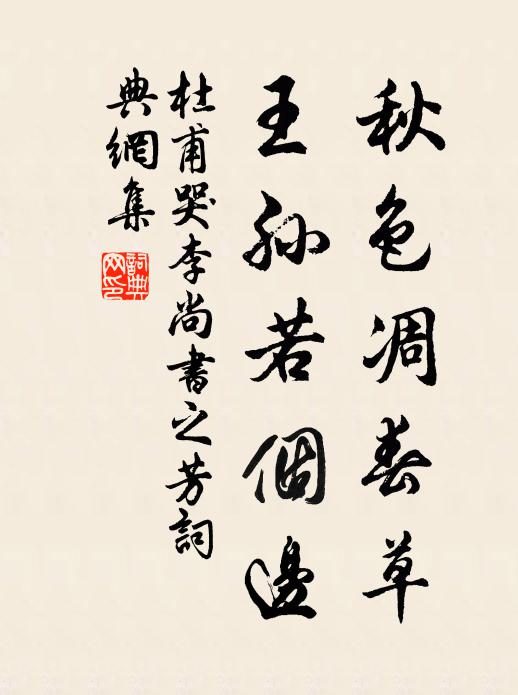 秋色凋春草
王孫若個邊
杜甫哭李尚書之芳詞
典網集
詞典網印